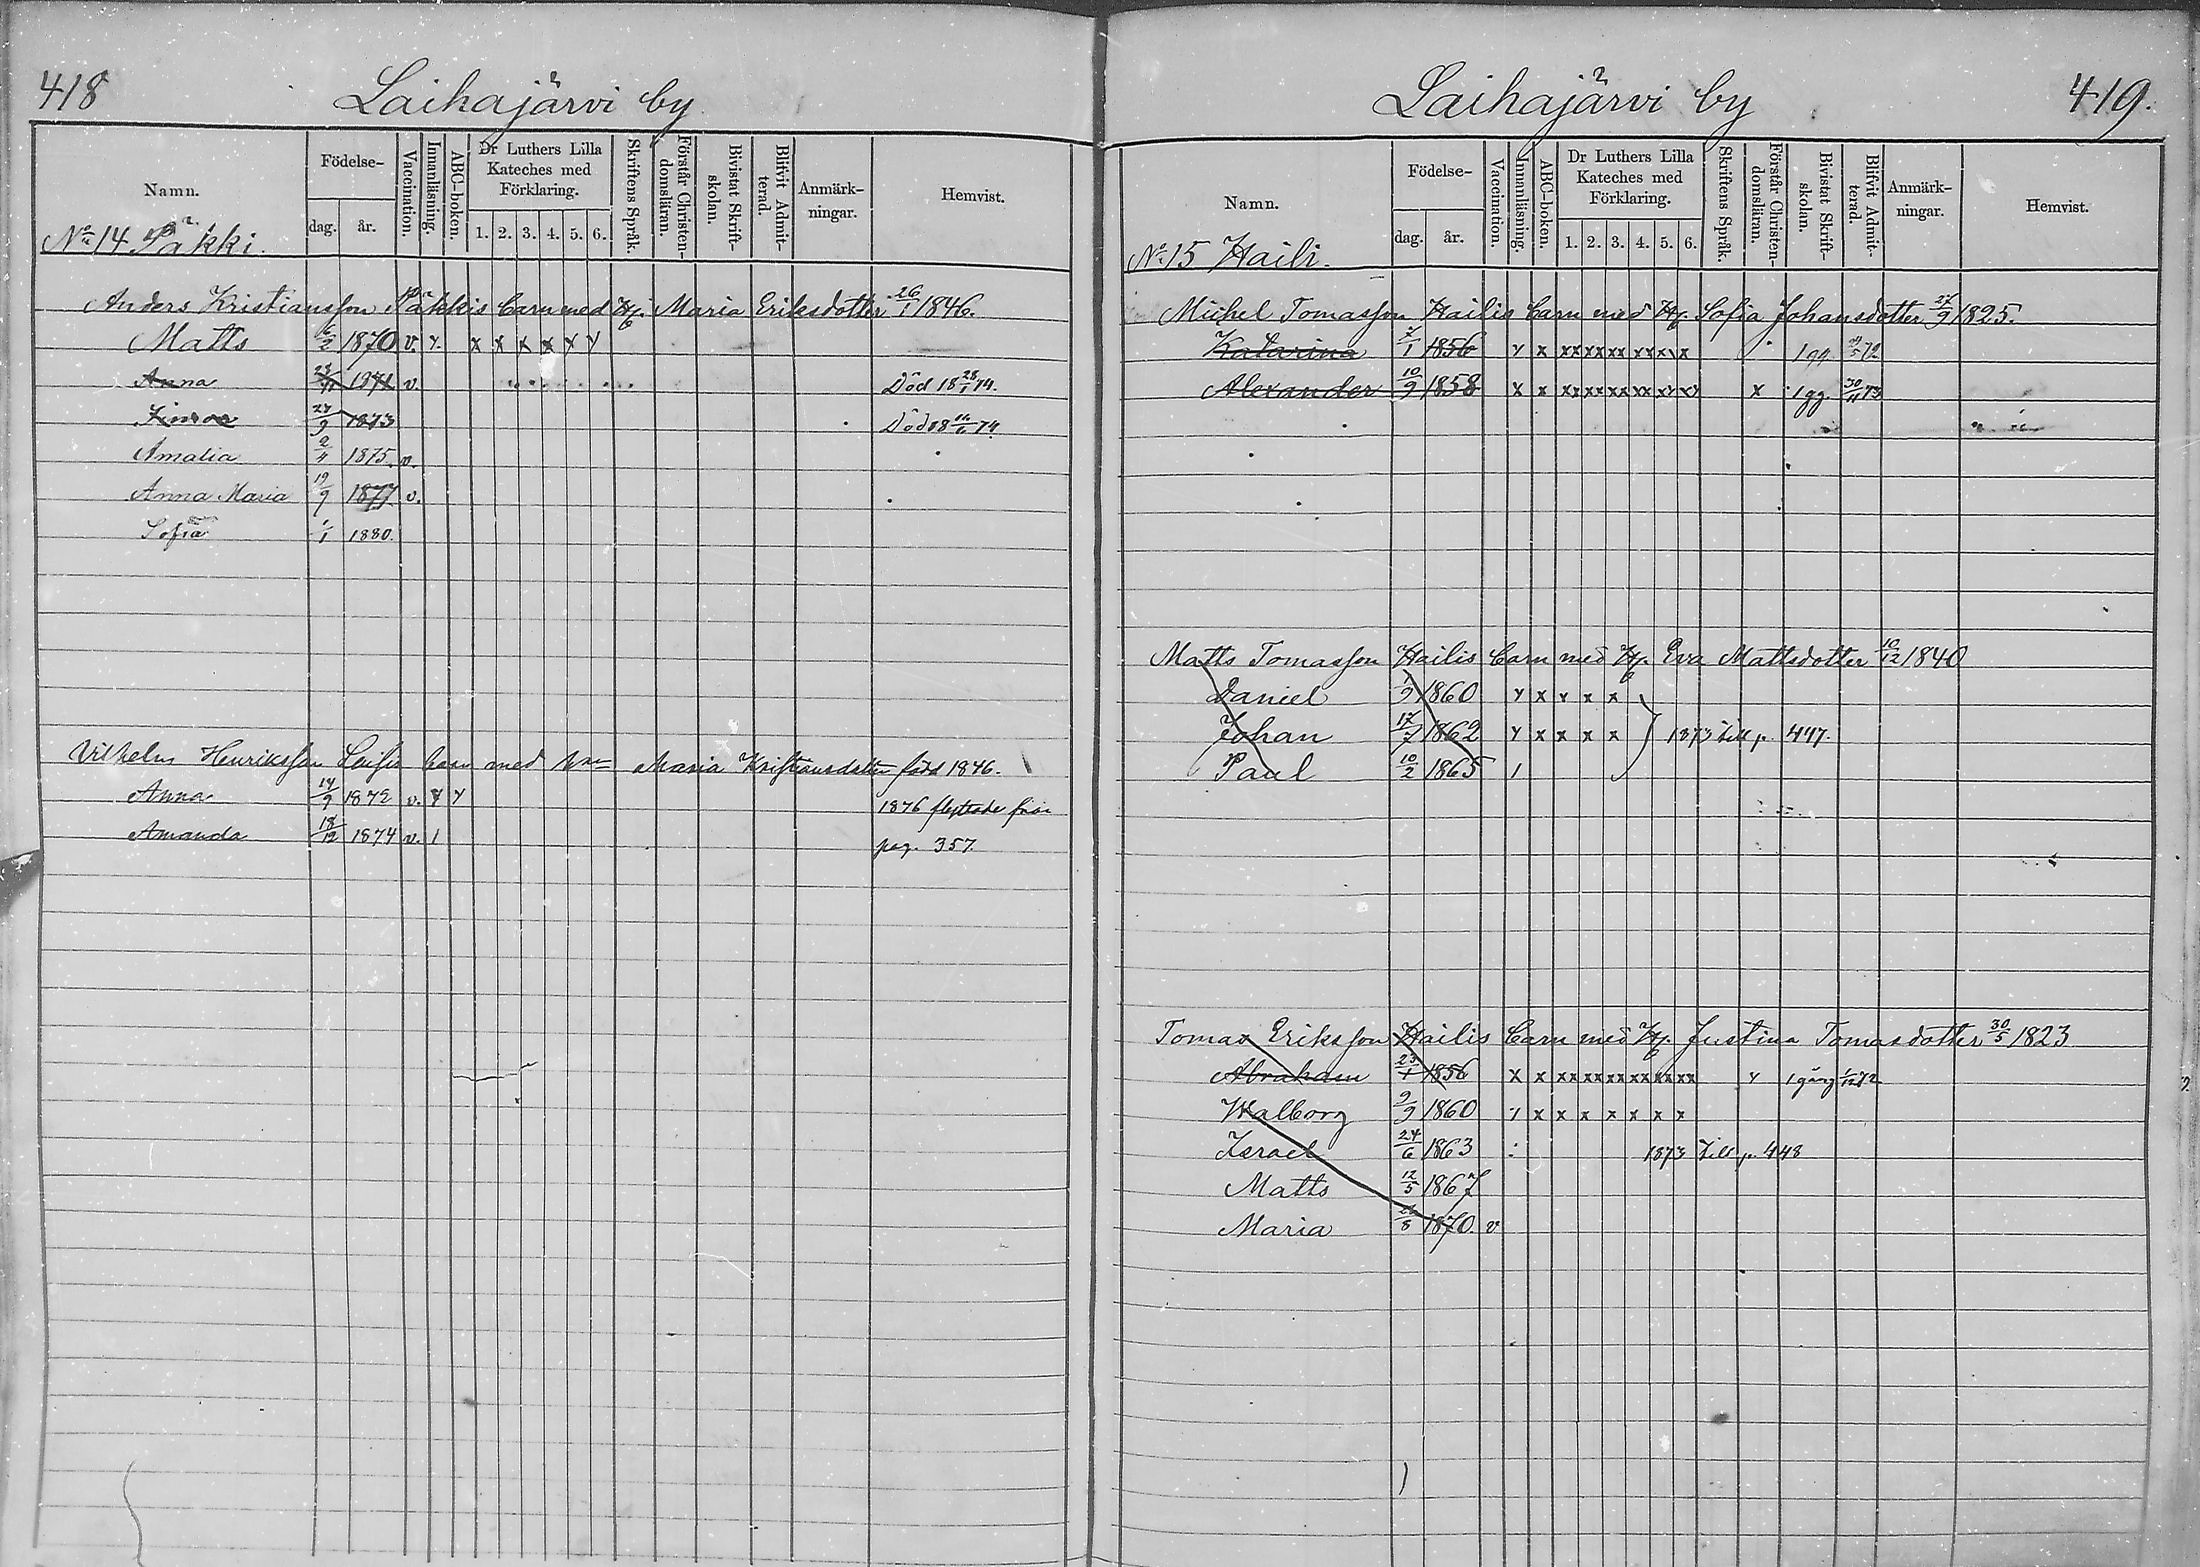 418 Laihajärvi by
Namn. Födelse- dag. år. Vaccination. Innanläsning. ABC-boken. Dr Luthers Lilla Kateches med Förklaring. 1. 2. 3. 4. 5. 6. Skriftens Språk. Förstår Christen-domsläran. Bivistat Skrift-skolan. Blifvit Admit-terad. Anmärk-ningar. Hemvist.
No 14 Päkki.
Anders Kristiansson Päkkis barn med H. Maria Eriksdotter 26/1 1846.
Matts 6/2 1870 v. Y. x x x x Y Y
Anna 1871 v. Död 18 28/1 74.
27/9 1873 Död 18 74.
Amalia 2/11 1875. v.
Anna Maria 19/9 1877 v.
Sofia 1/1 1880.
Vilhelm Henriksson barn med Maria Kristiansdotter född 1846.
Anna 14/9 1872 v. Y Y 1876 flyttade från
Amanda 18/12 1874 v. 1 pag. 357.
Laihajärvi by 419.
Namn. Födelse- dag. år. Vaccination. Innanläsning. ABC-boken. Dr Luthers Lilla Kateches med Förklaring. 1. 2. 3. 4. 5. 6. Skriftens Språk. Förstår Christen-domsläran. Bivistat Skrift-skolan. Blifvit Admit-terad. Anmärk-ningar. Hemvist.
No 15 Haili.
Michel Tomasson Hailis barn med H. Sofia Johansdotter 27/9 1825.
Katarina 7/1 1856 Y x xx xx xx xx x x 1 gg. 72
Alexander 10/9 1858 x x xx xx xx xx xx xx x 1 gg. 30/11 73
Matts Tomasson Hailis barn med H. Eva Mattsdotter 10/12 1840
Daniel 1/9 1860 Y x Y x x
Johan 17/7 1862 Y x x x x 1873 till p. 447.
Paul 10/2 1865 1
Tomas Eriksson Hailis barn med H. Justina Tomasdotter 30/5 1823
Abraham 23/1 1856 x x xx xx xx xx xx xx Y 1 gång 1/12 72
Walborg 9/9 1860 Y x x x x x x x
Israel 24/6 1863 1873 till p. 448
Matts 12/5 1867
Maria 26/8 1870. v